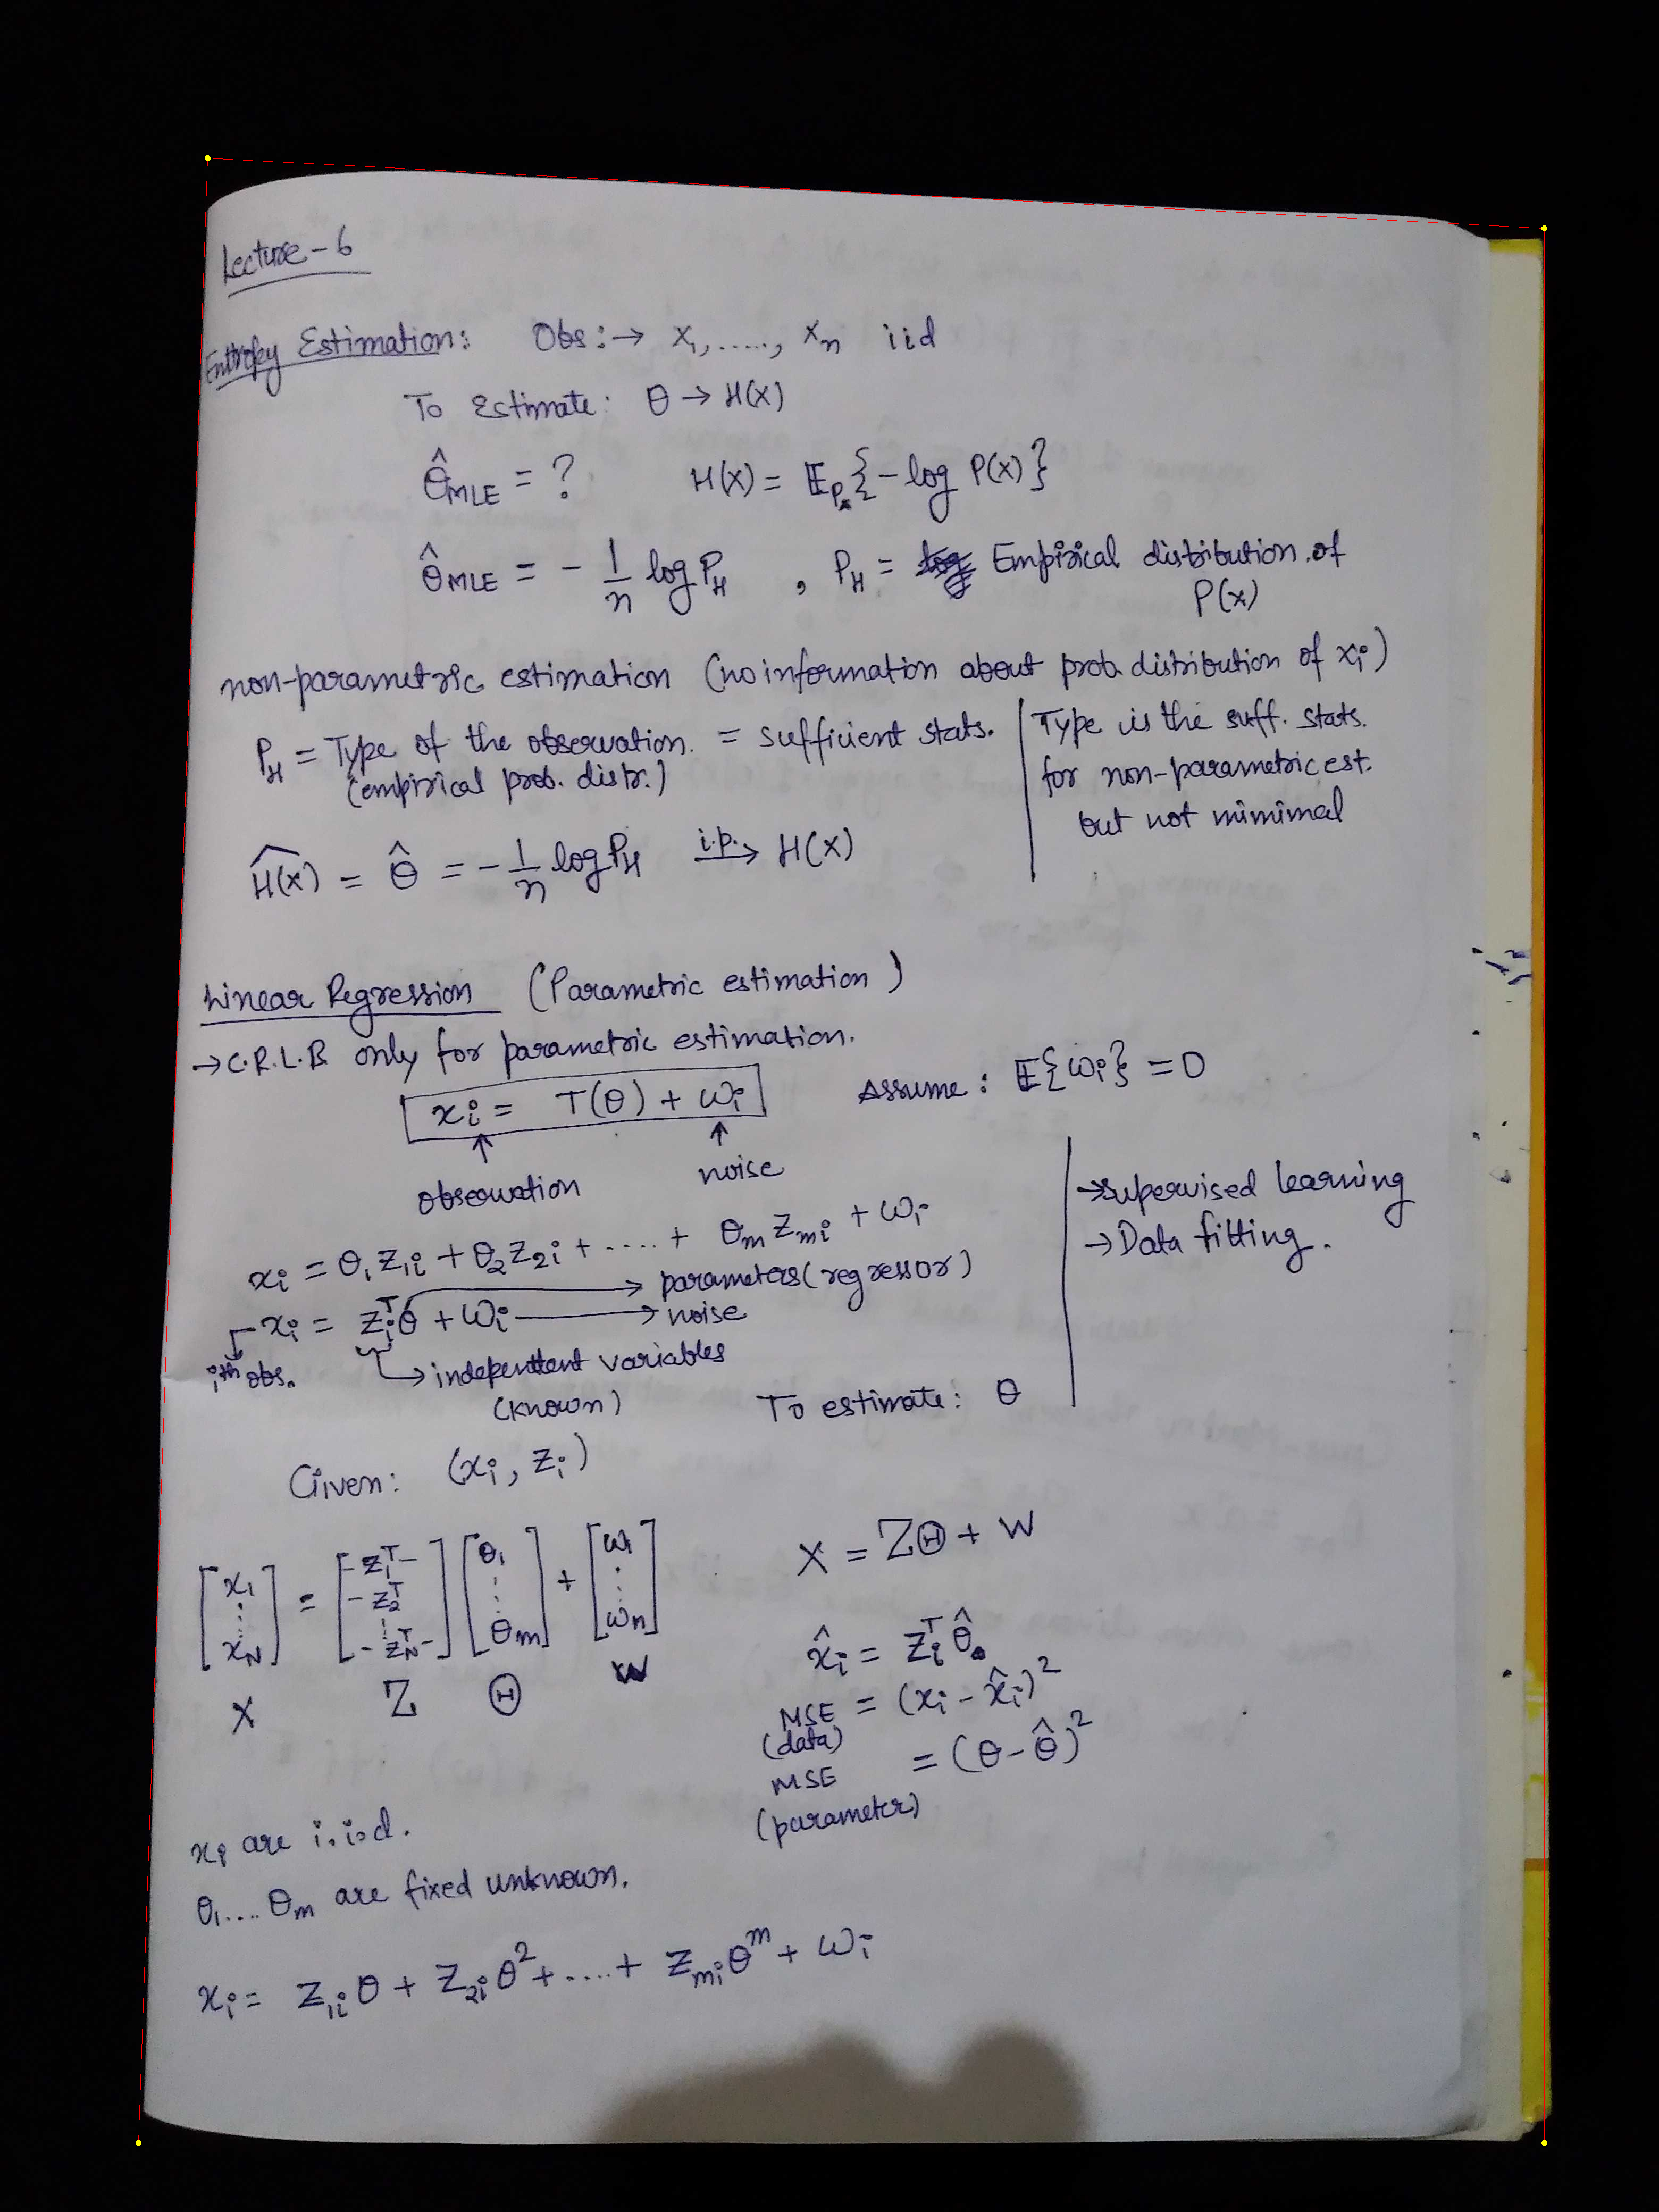 Lecture - 6
Entropy Estimation: Obs :→ X₁, ....., Xₙ iid
To Estimate: θ → H(X)
θ̂_MLE = ? H(X) = 𝔼_Pₓ{-log P(X)}
θ̂_MLE = - 1/n log P_H , P_H = Empirical distribution of
P(x)
non-parametric estimation (no information about prob. distribution of xᵢ)
P_H = Type of the observation. = sufficient stats.
(empirical prob. distr.)
Type is the suff. stats.
for non-parametric est.
but not mimimal
Ĥ(x) = θ̂ = - 1/n log P_H i.p.→ H(X)
Linear Regression (Parametric estimation)
→ C.R.L.B only for parametric estimation.
xᵢ = T(θ) + ωᵢ Assume : 𝔼{ωᵢ} = 0
↑ ↑
observation noise
→ supervised learning
→ Data fitting.
xᵢ = θ₁z₁ᵢ + θ₂z₂ᵢ + ..... + θₘzₘᵢ + ωᵢ
→ parameters (regressor)
xᵢ = zᵢᵀθ + ωᵢ → noise
iᵗʰ obs. → independent variables
(known) To estimate: θ
Given: (xᵢ, zᵢ)
[x₁ ⋮ x_N] = [-z₁ᵀ- -z₂ᵀ ⋮ -z_Nᵀ-] [θ₁ ⋮ θₘ] + [ω₁ ⋮ ωₙ]
X Z Θ W
X = ZΘ + W
x̂ᵢ = zᵢᵀ θ̂.
MSE = (xᵢ - x̂ᵢ)²
(data)
MSE = (θ - θ̂)²
(parameter)
xᵢ are i.i.d.
θ₁.... θₘ are fixed unknown.
xᵢ = z₁ᵢθ + z₂ᵢθ² + ..... + zₘᵢθᵐ + ωᵢ